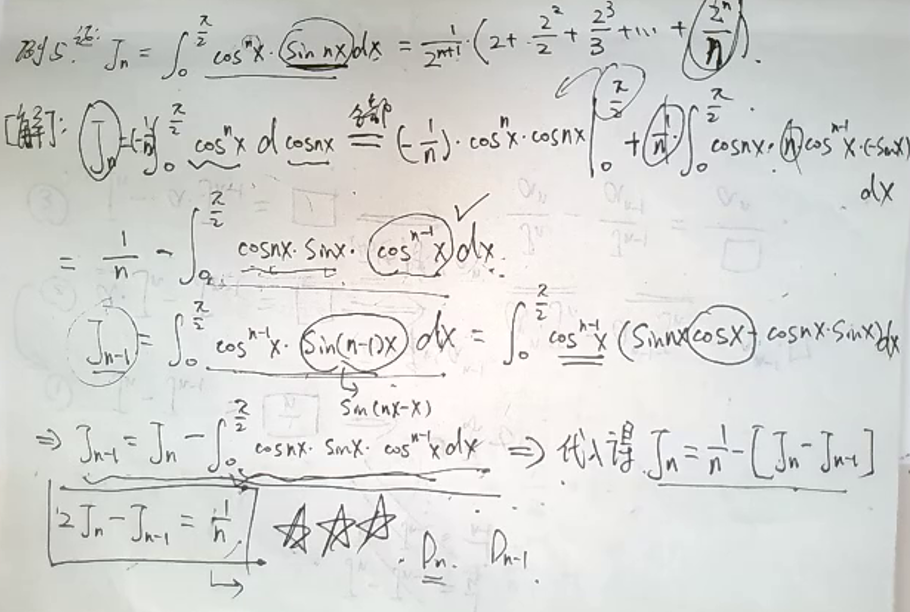 例5. 证: J_n = ∫_0^{π/2} cos^n x · sin nx dx = 1/2^{n+1} · (2 + 2^2/2 + 2^3/3 + ··· + 2^n/n).
[解]: J_n = (-1/n) ∫_0^{π/2} cos^n x d cosnx 分部= (-1/n) · cos^n x · cosnx |_0^{π/2} + (1/n) · ∫_0^{π/2} cosnx · n cos^{n-1} x · (-sinx) dx
= 1/n - ∫_0^{π/2} cosnx · sinx · cos^{n-1} x dx. ✓
J_{n-1} = ∫_0^{π/2} cos^{n-1} x · sin(n-1)x dx = ∫_0^{π/2} cos^{n-1} x (sinnx cosx - cosnx · sinx) dx
↳ sin(nx-x)
⇒ J_{n-1} = J_n - ∫_0^{π/2} cosnx · sinx · cos^{n-1} x dx ⇒ 代入得 J_n = 1/n - [J_n - J_{n-1}]
2J_n - J_{n-1} = 1/n ☆☆☆ D_n. D_{n-1}.